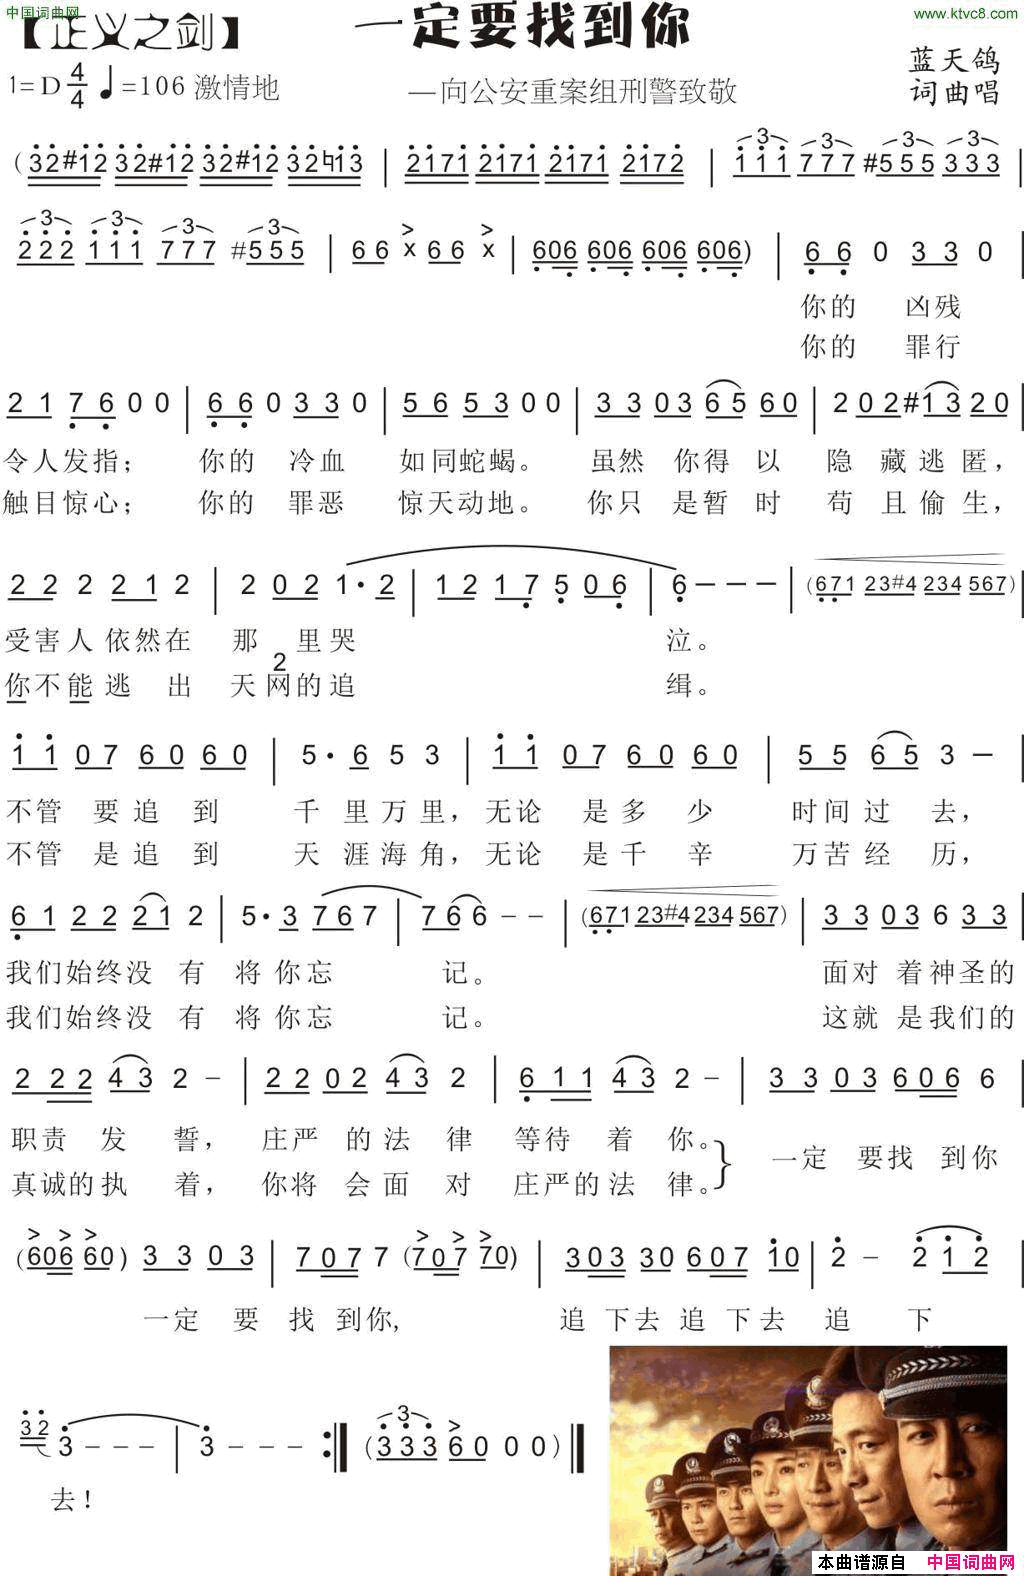 中国词曲网
www.ktvc8.com
【正义之剑】 一定要找到你
1=D 4/4 ♩=106 激情地 —向公安重案组刑警致敬 蓝天鸽 词曲唱
(32#12 32#12 32#12 32♮13 | 2171 2171 2171 2172 | 111 777 #555 333 |
222 111 777 #555 | 66 x 66 x | 606 606 606 606) | 66 0 33 0 |
你的 凶残
你的 罪行
21 76 0 0 | 66 0 33 0 | 56 53 0 0 | 33 03 65 60 | 2 02 #13 20 |
令人发指; 你的 冷血 如同蛇蝎。 虽然 你得 以 隐 藏逃 匿,
触目惊心; 你的 罪恶 惊天动地。 你只 是暂 时 苟 且偷 生,
22 2 21 2 | 2 02 1·2 | 12 17 5 06 | 6 — — — | (671 23#4 234 567) |
受害人 依然在 那 里哭 泣。
2
你不能 逃 出 天网的追 缉。
11 07 60 60 | 5·6 5 3 | 11 07 60 60 | 55 65 3 — |
不管 要追 到 千里万里, 无论 是多 少 时间过 去,
不管 是追 到 天涯海角, 无论 是千 辛 万苦经 历,
61 22 21 2 | 5·3 767 | 766 - - | (671 23#4 234 567) | 33 03 6 33 |
我们始终没 有 将你忘 记。 面对 着神圣的
我们始终没 有 将你忘 记。 这就 是我们的
2 22 43 2 - | 22 02 43 2 | 611 43 2 - | 33 03 606 6 |
职责 发 誓, 庄严 的法 律 等待 着 你。
一定 要找 到你
真诚的执 着, 你将 会面 对 庄严的法 律。
(606 60) 33 03 | 707 7 (707 70) | 303 30 607 10 | 2 - 212 |
一定 要 找 到你, 追 下去 追 下去 追 下
32 3 - - - | 3 - - - :| (333 60 0 0) ||
去!
本曲谱源自 中国词曲网